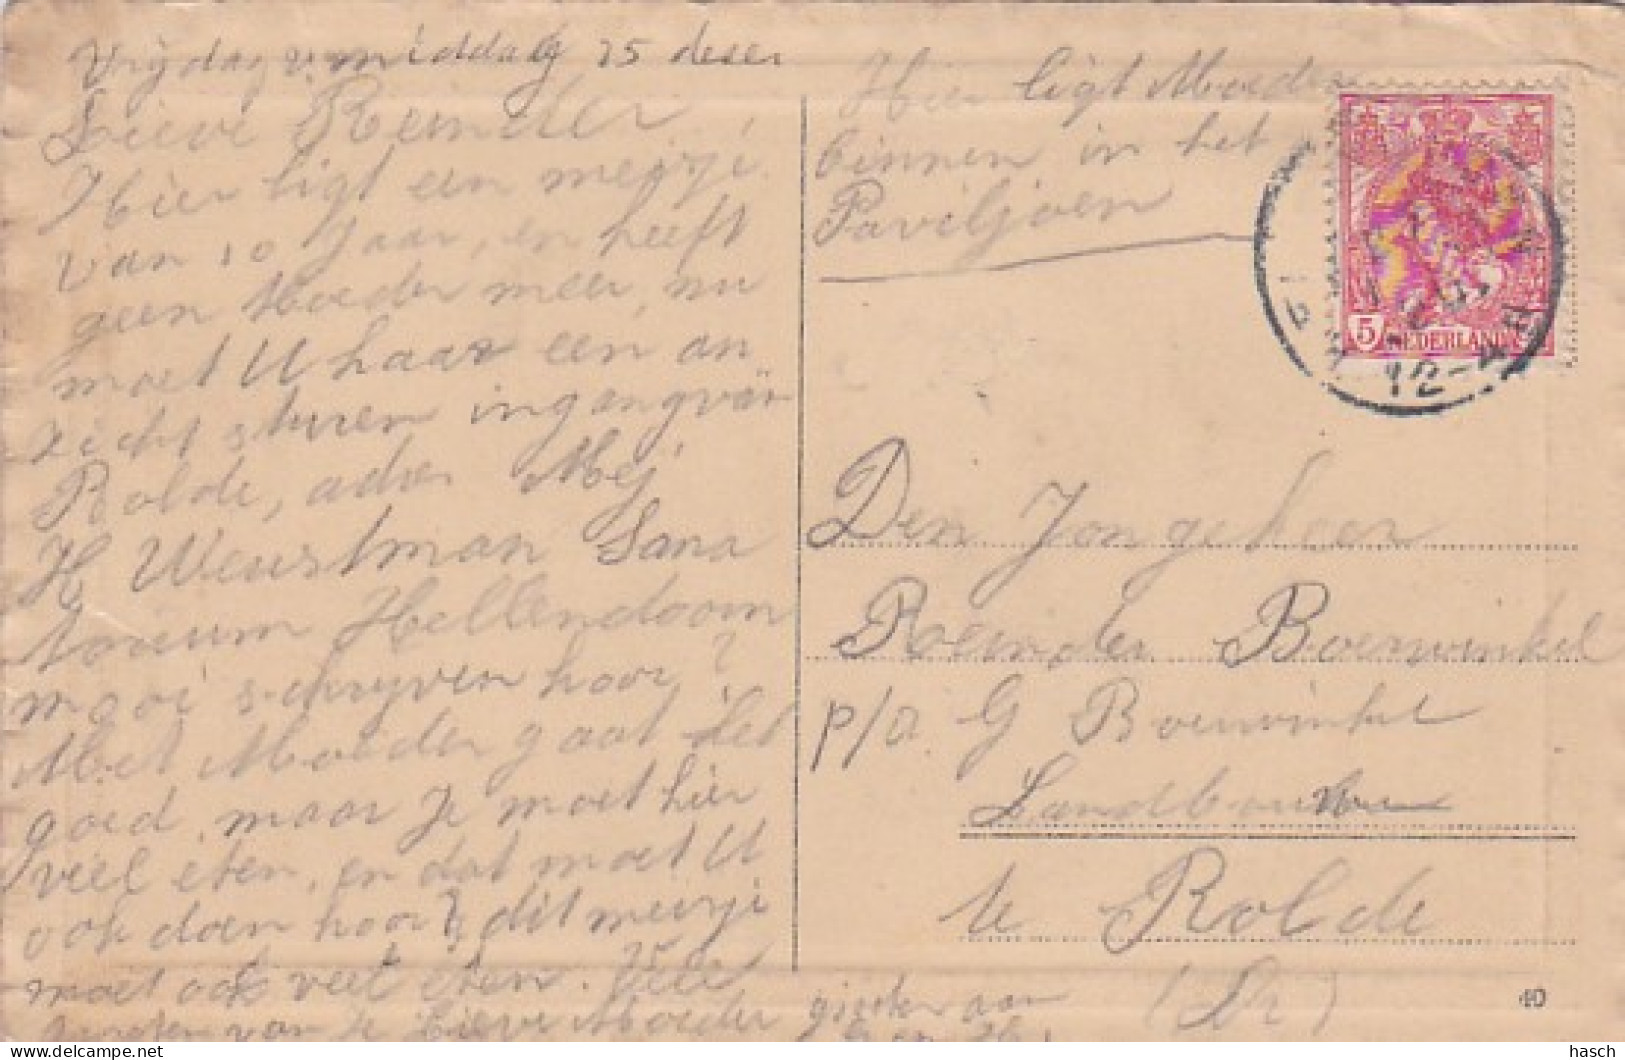 Vrijdag middag 25 deser
Lieve Reinder
Hier ligt een meisje
van 10 Jaar, en heeft
geen Moeder meer, nu
moet U haar een an
zicht sturen ingang van
Rolde, adres Mej
H Weustman Sana
torium Hellendoorn
mooi schryven hoor?
Met Moeder gaat het
goed, maar Je moet hier
veel eten, en dat moet U
ook doen hoor, dit meisje
moet ook veel eten. Vele
groeten van Je Lieve Moeder
groeten aan
Hier ligt Moeder
binnen in het
Paviljoen
5
NEDERLAND
12-
Den Jongeheer
Reinder Boerwinkel
p/a. G Boerwinkel
Landbouwer
te Rolde
(Dr)
40
hasch